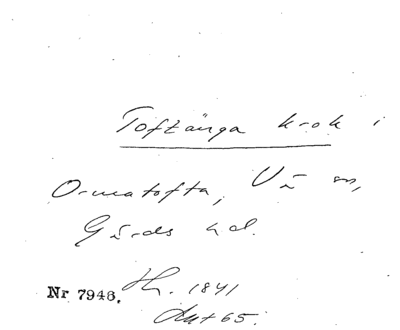 Toftänga krok i
Ormatofta, Vä sn,
Gärds hd.
Nr 7948. Hr. 1841
Akt 65.